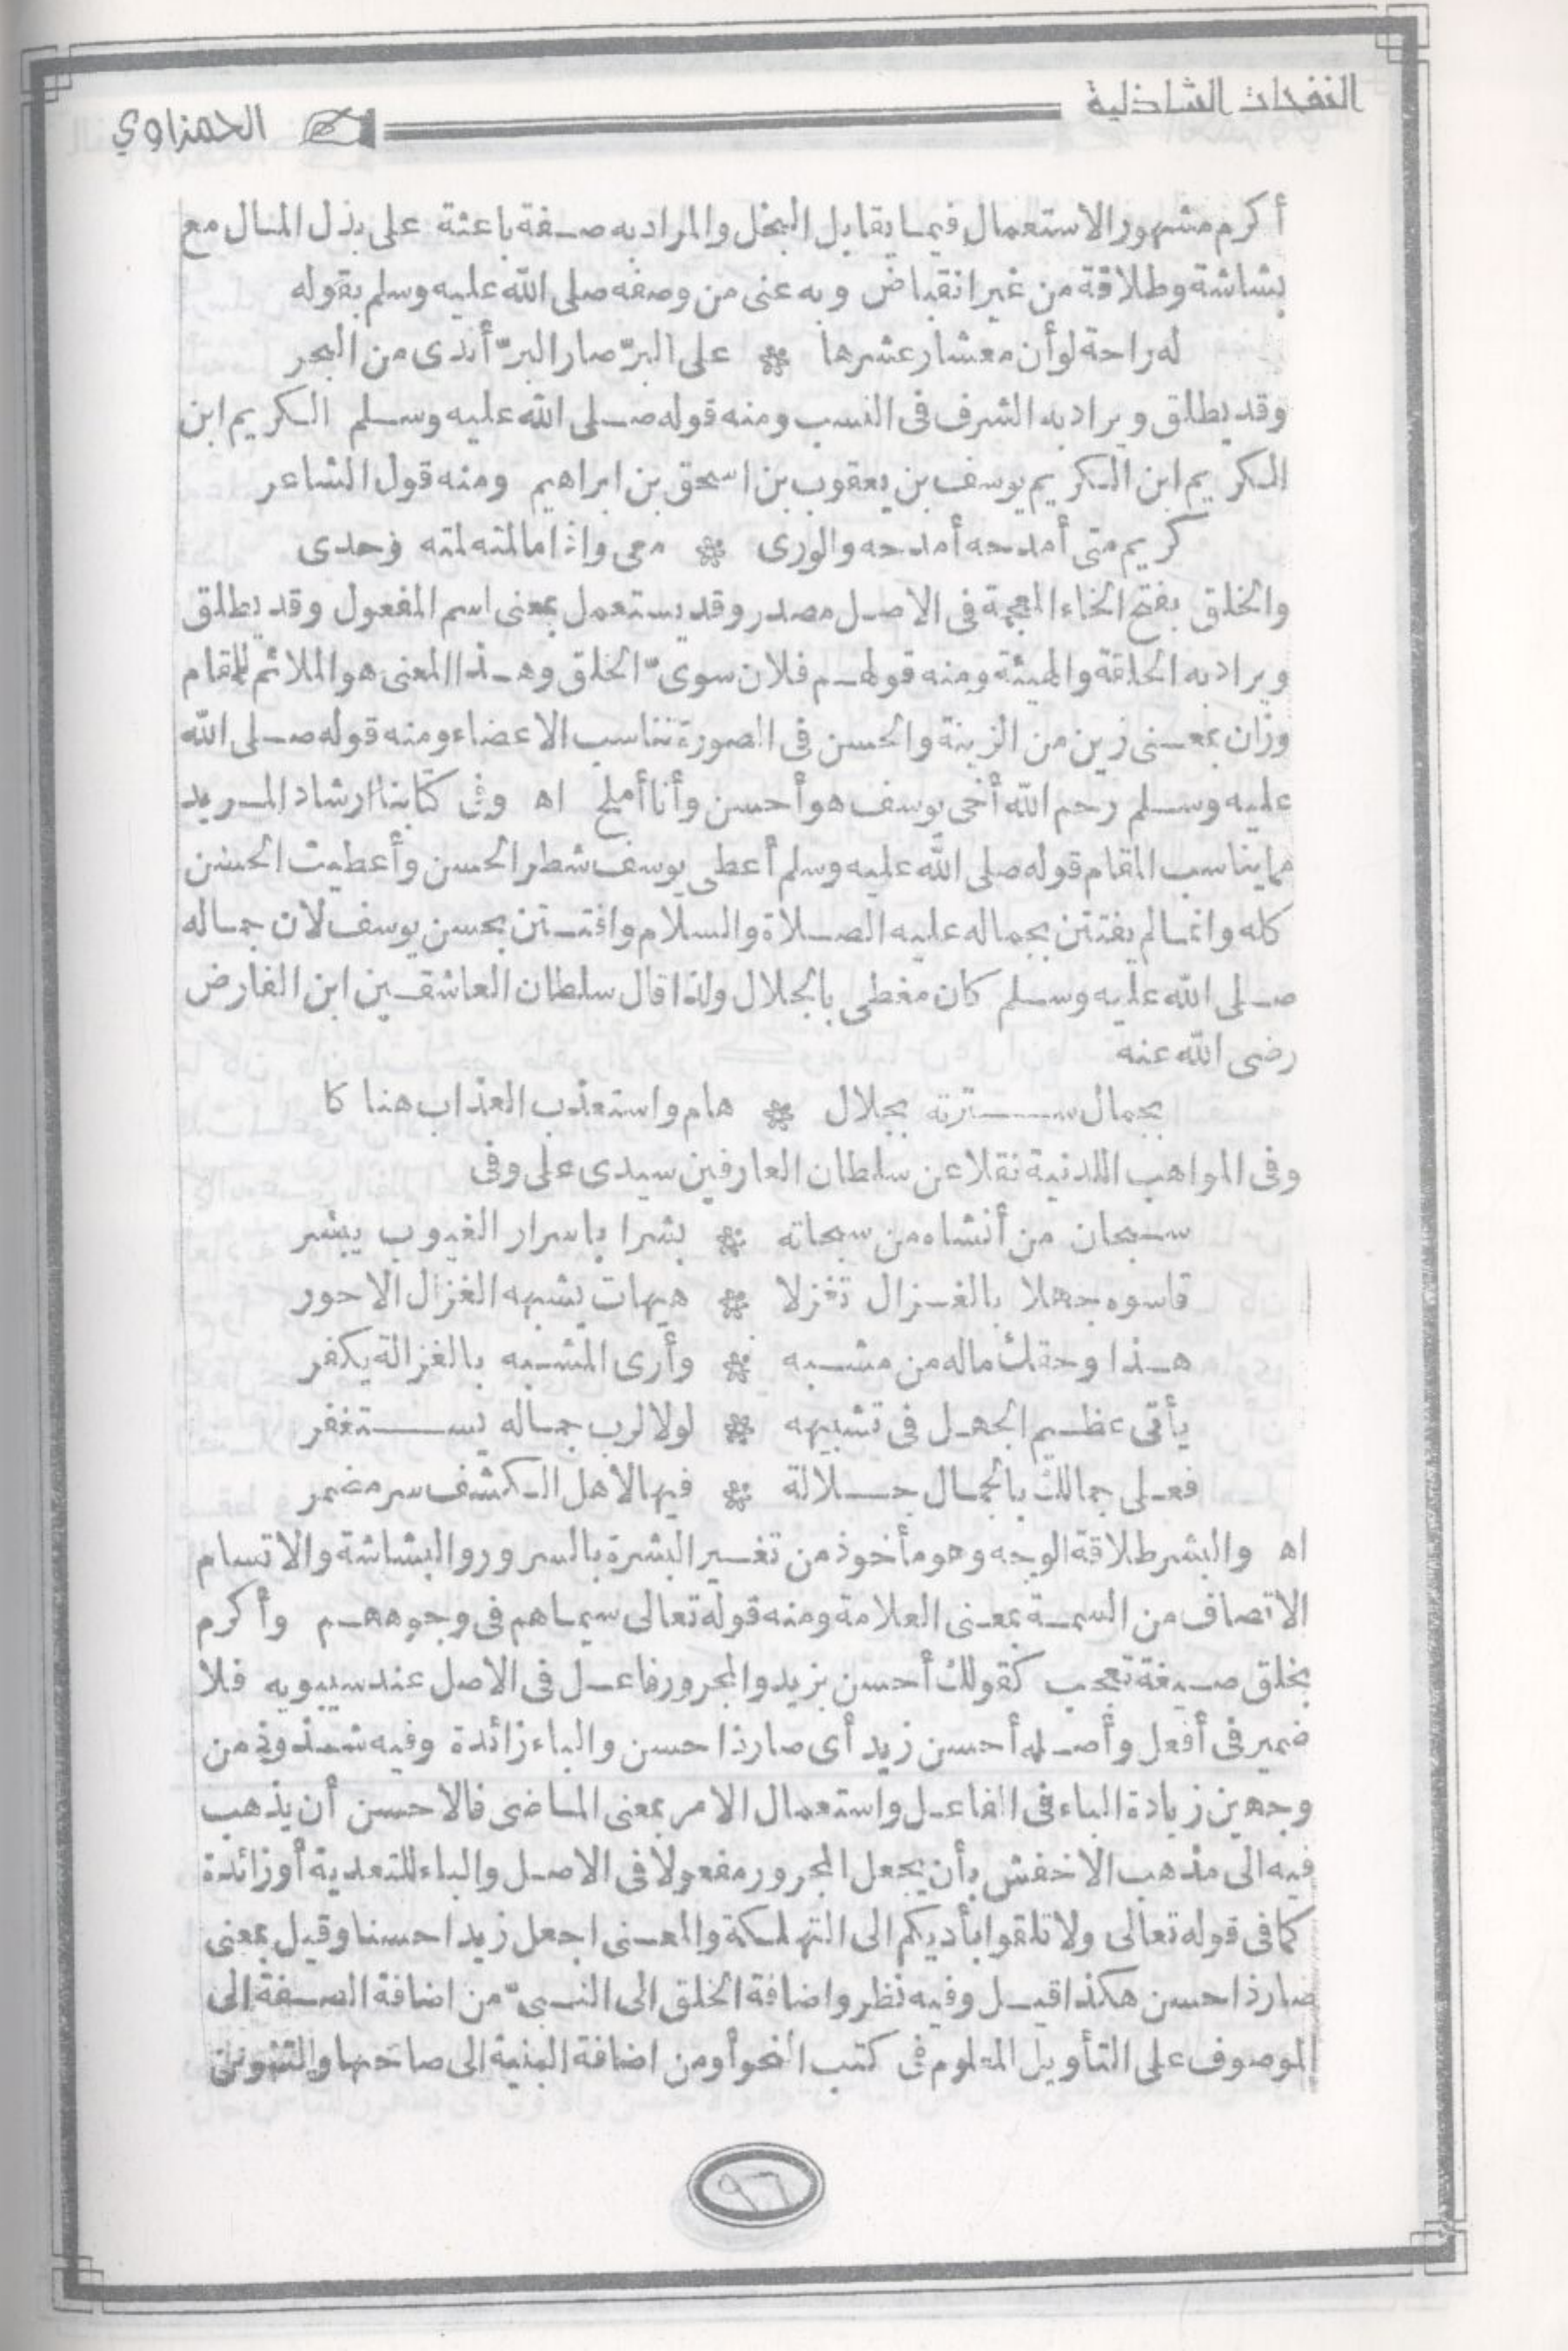 النفحات الشاذلية
الحمزاوي
أكرم مشهور الاستعمال فيما يقابل البخل والمراد به صفة باعثة على بذل المال مع
بشاشة وطلاقة من غير انقباض وبه عنى من وصفه صلى الله عليه وسلم بقوله
له راحة لو أن معشار عشرها * على البرّ صار البرّ أندى من البحر
وقد يطلق ويراد به الشرف فى النسب ومنه قوله صلى الله عليه وسلم الكريم ابن
الكريم ابن الكريم يوسف بن يعقوب بن اسحق بن ابراهيم ومنه قول الشاعر
كريم متى أمدحه أمدحه والورى * معى واذا ما لمته لمته وحدى
والخلق بفتح الخاء المعجمة فى الاصل مصدر وقد يستعمل بمعنى اسم المفعول وقد يطلق
ويراد به الخلقة والهيئة ومنه قولهم فلان سوىّ الخلق وهذا المعنى هو الملائم للمقام
وزان بمعنى زين من الزينة والحسن فى الصورة تناسب الاعضاء ومنه قوله صلى الله
عليه وسلم رحم الله أخى يوسف هو أحسن وأنا أملح اه وفى كتابنا ارشاد المريد
مما يناسب المقام قوله صلى الله عليه وسلم أعطى يوسف شطر الحسن وأعطيت الحسن
كله وانما لم يفتتن بجماله عليه الصلاة والسلام وافتتن بحسن يوسف لان جماله
صلى الله عليه وسلم كان مغطى بالجلال ولذا قال سلطان العاشقين ابن الفارض
رضى الله عنه
بجمال سترته بجلال * هام واستعذب العذاب هنا كا
وفى المواهب اللدنية نقلا عن سلطان العارفين سيدى على وفى
سبحان من أنشاه من سبحاته * بشرا باسرار الغيوب يبشر
قاسوه جهلا بالغزال تغزلا * هيهات يشبهه الغزال الاحور
هذا وحقك ماله من مشبه * وأرى المشبه بالغزالة يكفر
يأتى عظيم الجهل فى تشبيهه * لولا لرب جماله يستغفر
فعلى جمالك بالجمال جلالة * فيها لأهل الكشف سر مضمر
اه والبشر طلاقة الوجه وهو مأخوذ من تغير البشرة بالسرور والبشاشة والاتسام
الاتصاف من السمة بمعنى العلامة ومنه قوله تعالى سيماهم فى وجوههم وأكرم
بخلق صيغة تعجب كقولك أحسن بزيد والمجرور فاعل فى الاصل عند سيبويه فلا
ضمير فى أفعل وأصله أحسن زيد أى صار ذا حسن والباء زائدة وفيه شذوذ من
وجهين زيادة الباء فى الفاعل واستعمال الامر بمعنى الماضى فالاحسن أن يذهب
فيه الى مذهب الاخفش بأن يجعل المجرور مفعولا فى الاصل والباء للتعدية أو زائدة
كما فى قوله تعالى ولا تلقوا بأديكم الى التهلكة والمعنى اجعل زيدا حسنا وقيل بمعنى
صار ذا حسن هكذا قيل وفيه نظر واضافة الخلق الى النبىّ من اضافة الصفة الى
الموصوف على التأويل المعلوم فى كتب النحو أو من اضافة البنية الى صاحبها والتنوين
٩٦